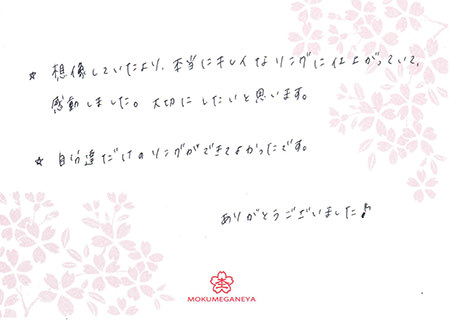 ☆ 想像していたより、本当にキレイなリングに仕上がっていて、
感動しました。大切にしたいと思います。
☆ 自分達だけのリングができてよかったです。
ありがとうございました♪
MOKUMEGANEYA